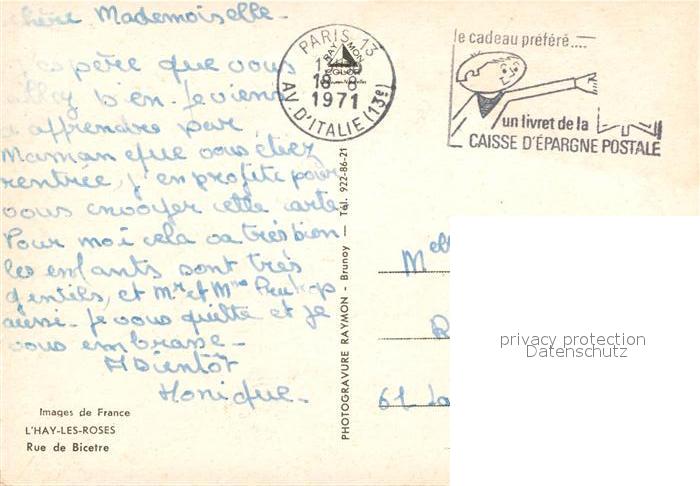 chère Mademoiselle -
J'espère que vous
allez bien. Je viens
d'apprendre par
Maman que vous étiez
rentrée, j'en profite pour
vous envoyer cette carte
Pour moi cela va très bien
les enfants sont très
gentils, et Mr et Mme
aussi - Je vous quitte et je
vous embrasse -
A Bientôt
Monique -
Images de France
L'HAY-LES-ROSES
Rue de Bicetre
PHOTOGRAVURE RAYMON - Brunoy - Tél. 922-86-21
RAYMON
COLOR
PARIS 13
18-8
1971
AV. D'ITALIE (13e)
le cadeau préféré....
un livret de la
CAISSE D'ÉPARGNE POSTALE
Melle
R
61 La
privacy protection
Datenschutz